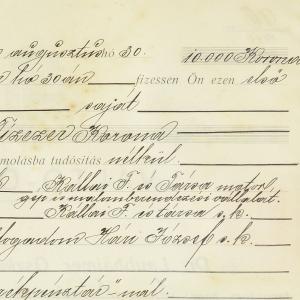 augusztus hó 30. 10.000 Korona
hó 30án fizessen Ön ezen első
saját
Tízezer Korona
molásba tudósítás nélkül.
Kállai F. és Társa motor
gép és malomberendezési vállalat.
Kállai F. és társa s. k.
Elfogadom Hári József s. k.
"-nál.